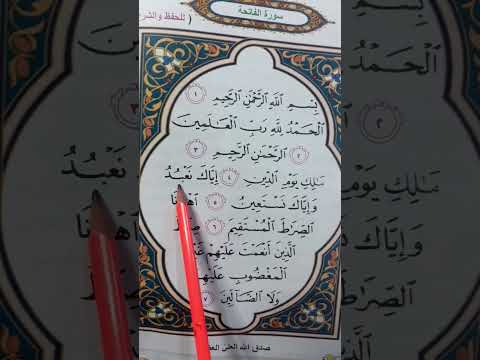 سورة الفاتحة
بِسْمِ اللَّهِ الرَّحْمَٰنِ الرَّحِيمِ ١
الْحَمْدُ لِلَّهِ رَبِّ الْعَٰلَمِينَ
٢ الرَّحْمَٰنِ الرَّحِيمِ ٣
مَٰلِكِ يَوْمِ الدِّينِ ٤ إِيَّاكَ نَعْبُدُ
وَإِيَّاكَ نَسْتَعِينُ ٥
الصِّرَٰطَ الْمُسْتَقِيمَ ٦
الَّذِينَ أَنْعَمْتَ عَلَيْهِمْ
الْمَغْضُوبِ عَلَيْهِمْ
وَلَا الضَّآلِّينَ ٧
صدق الله العلي